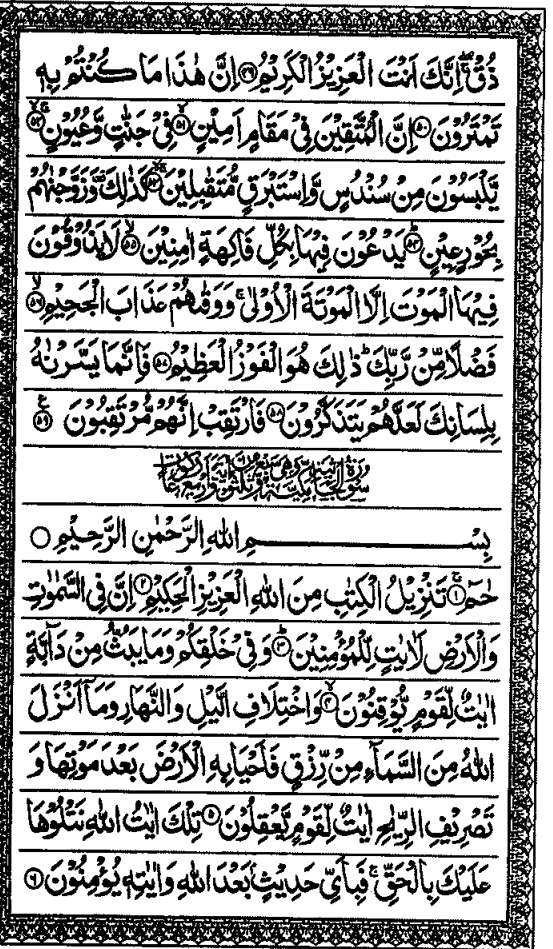 ذُقْ ۚ اِنَّكَ اَنْتَ الْعَزِيْزُ الْكَرِيْمُ ﴿۴۹﴾ اِنَّ هٰذَا مَا كُنْتُمْ بِهٖ
تَمْتَرُوْنَ ﴿۵۰﴾ اِنَّ الْمُتَّقِيْنَ فِيْ مَقَامٍ اَمِيْنٍ ﴿۵۱﴾ فِيْ جَنّٰتٍ وَّعُيُوْنٍ ﴿۵۲﴾
يَّلْبَسُوْنَ مِنْ سُنْدُسٍ وَّاِسْتَبْرَقٍ مُّتَقٰبِلِيْنَ ﴿۵۳﴾ كَذٰلِكَ ۫ وَزَوَّجْنٰهُمْ
بِحُوْرٍ عِيْنٍ ﴿۵۴﴾ يَدْعُوْنَ فِيْهَا بِكُلِّ فَاكِهَةٍ اٰمِنِيْنَ ﴿۵۵﴾ لَا يَذُوْقُوْنَ
فِيْهَا الْمَوْتَ اِلَّا الْمَوْتَةَ الْاُوْلٰى ۚ وَوَقٰىهُمْ عَذَابَ الْجَحِيْمِ ﴿۵۶﴾
فَضْلًا مِّنْ رَّبِّكَ ؕ ذٰلِكَ هُوَ الْفَوْزُ الْعَظِيْمُ ﴿۵۷﴾ فَاِنَّمَا يَسَّرْنٰهُ
بِلِسَانِكَ لَعَلَّهُمْ يَتَذَكَّرُوْنَ ﴿۵۸﴾ فَارْتَقِبْ اِنَّهُمْ مُّرْتَقِبُوْنَ ﴿۵۹﴾
بِسْمِ اللّٰهِ الرَّحْمٰنِ الرَّحِيْمِ ○
حٰمٓ ﴿۱﴾ تَنْزِيْلُ الْكِتٰبِ مِنَ اللّٰهِ الْعَزِيْزِ الْحَكِيْمِ ﴿۲﴾ اِنَّ فِي السَّمٰوٰتِ
وَالْاَرْضِ لَاٰيٰتٍ لِّلْمُؤْمِنِيْنَ ﴿۳﴾ وَفِيْ خَلْقِكُمْ وَمَا يَبُثُّ مِنْ دَآبَّةٍ
اٰيٰتٌ لِّقَوْمٍ يُّوْقِنُوْنَ ﴿۴﴾ وَاخْتِلَافِ الَّيْلِ وَالنَّهَارِ وَمَاۤ اَنْزَلَ
اللّٰهُ مِنَ السَّمَآءِ مِنْ رِّزْقٍ فَاَحْيَا بِهِ الْاَرْضَ بَعْدَ مَوْتِهَا وَ
تَصْرِيْفِ الرِّيٰحِ اٰيٰتٌ لِّقَوْمٍ يَّعْقِلُوْنَ ﴿۵﴾ تِلْكَ اٰيٰتُ اللّٰهِ نَتْلُوْهَا
عَلَيْكَ بِالْحَقِّ ۚ فَبِاَيِّ حَدِيْثٍۭ بَعْدَ اللّٰهِ وَاٰيٰتِهٖ يُؤْمِنُوْنَ ﴿۶﴾